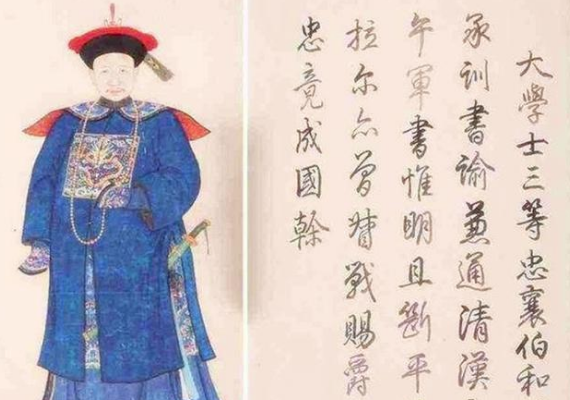 大學士三等忠襄伯和
承訓書諭兼通清漢
午軍書惟明且斷平
拉尔亦曾督戰賜爵
忠竟成國幹